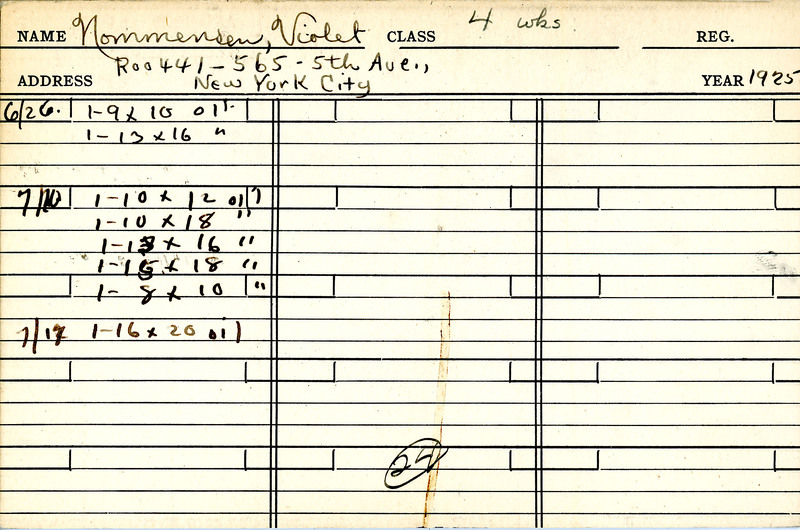 NAME Nommensen, Violet CLASS 4 wks REG.
ADDRESS Roo 441 - 565 - 5th Ave., New York City YEAR 1925
6/26. 1-9 x 10 oil
1-13 x 16 "
7/10 1-10 x 12 oil
1-10 x 18 "
1-13 x 16 "
1-15 x 18 "
1- 8 x 10 "
7/17 1-16 x 20 oil
24